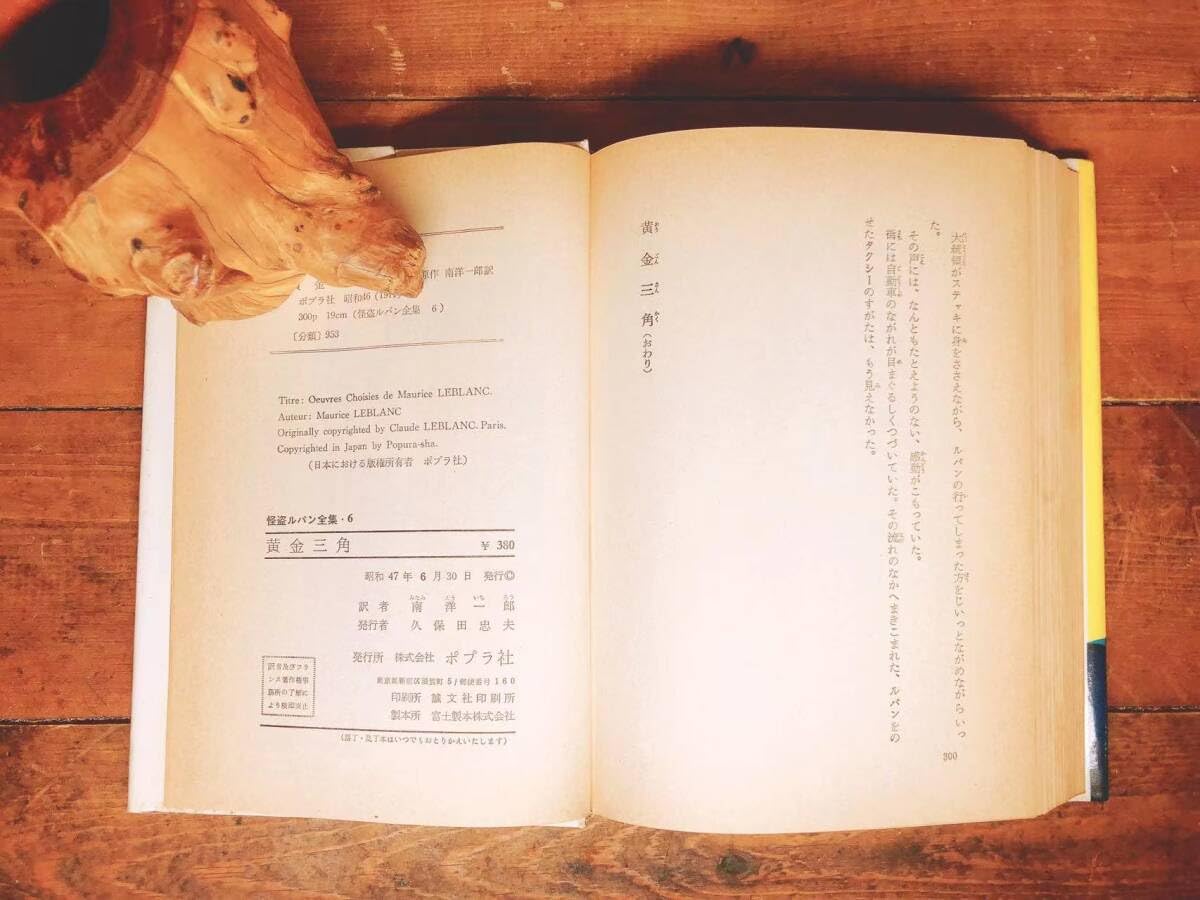 大統領がステッキに身をささえながら、ルパンの行ってしまった方をじいっとながめながらいっ
た。
その声には、なんともたとえようのない、感動がこもっていた。
街には自動車のながれが目まぐるしくつづいていた。その流れのなかへまきこまれた、ルパンをの
せたタクシーのすがたは、もう見えなかった。
黄金三角(おわり)
300
原作 南洋一郎訳
ポプラ社 昭和46
300p 19cm(怪盗ルパン全集 6)
〔分類〕953
Titre: Oeuvres Choisies de Maurice LEBLANC.
Auteur: Maurice LEBLANC
Originally copyrighted by Claude LEBLANC. Paris.
Copyrighted in Japan by Popura-sha.
(日本における版権所有者 ポプラ社)
怪盗ルパン全集・6
黄金三角 ¥380
昭和47年6月30日 発行©
訳者 南洋一郎
発行者 久保田忠夫
発行所 株式会社 ポプラ社
東京都新宿区須賀町5/郵便番号160
印刷所 誠文社印刷所
製本所 富士製本株式会社
訳者及びフラ
ンス著作権事
務所の了解に
より検印廃止
(落丁・乱丁本はいつでもおとりかえいたします)